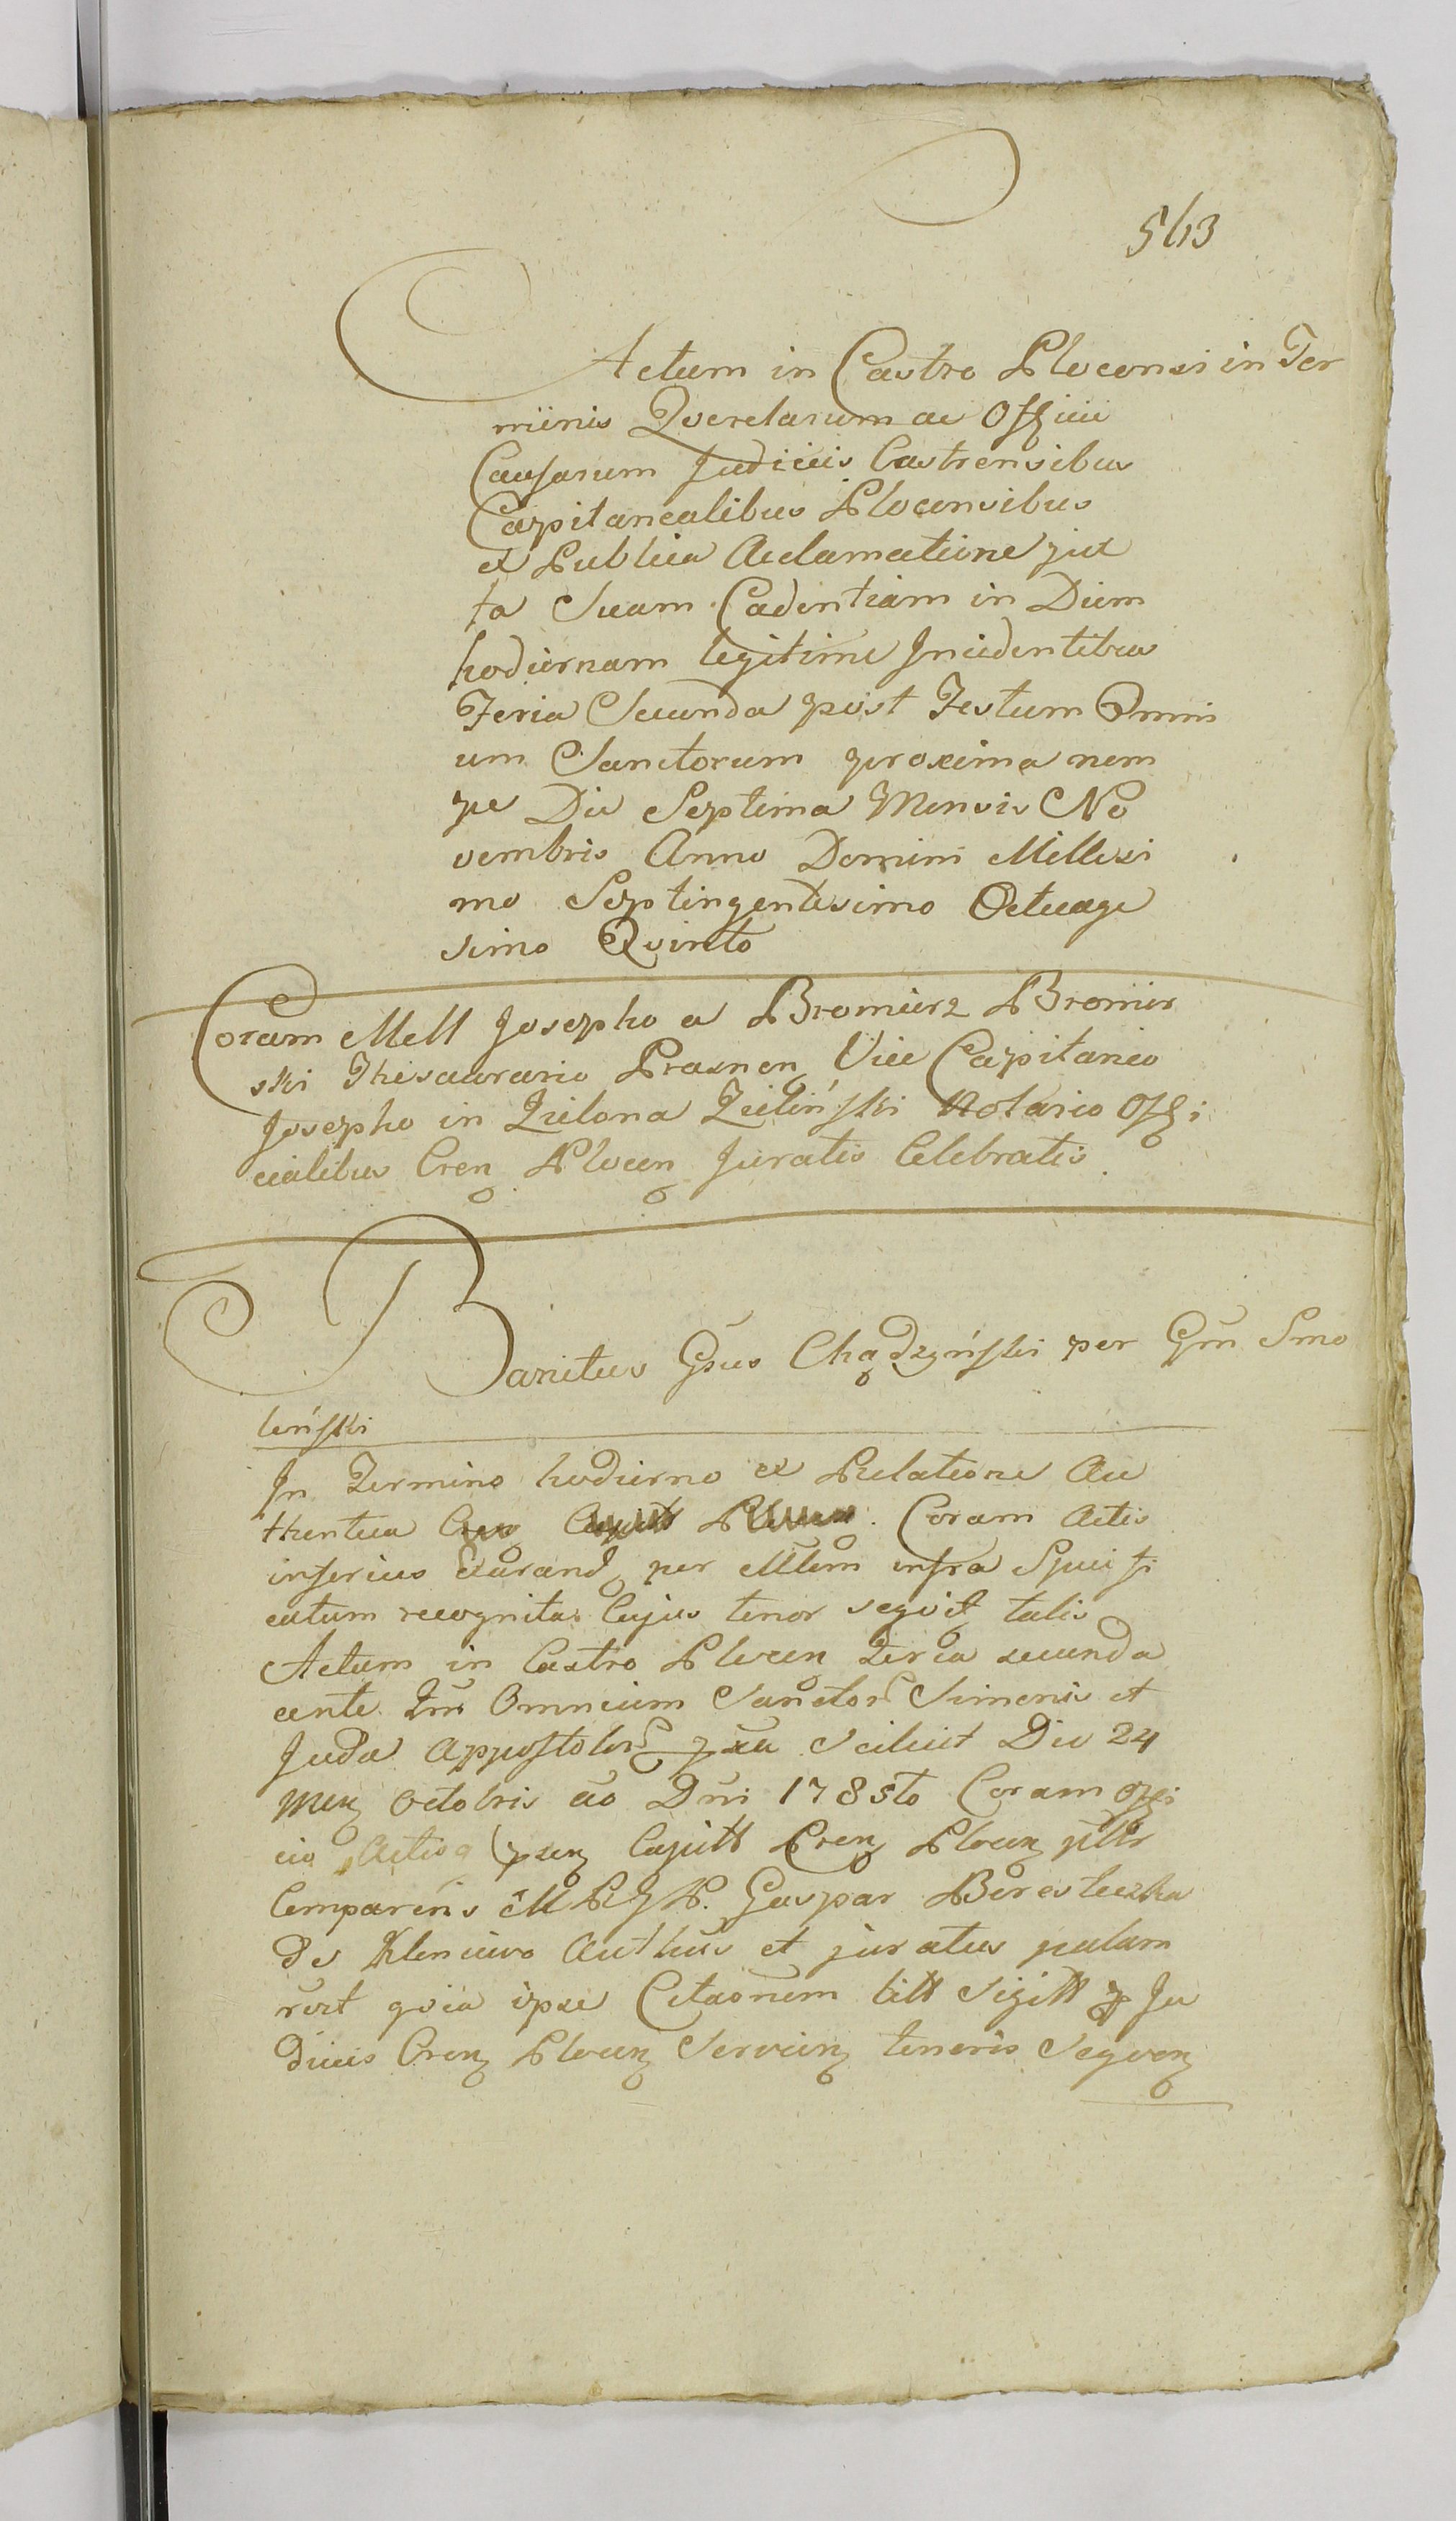 563
Actum in Castro Plocensi in Ter
minis Qverelarum ac Officii
Causarum Judiciis Castrensibus
Capitanealibus Plocensibus
ex Publica Acclamatione jux
ta Suam Cadentiam in Diem
hodiernam legitime Incidentibus
Feria Secunda post Festum Omni
um Sanctorum proxima nem
pe Die Septima Mensis No
vembris Anno Domini Millesi
mo Septingentesimo Octuage
simo Qvinto
Coram Mell Josepho a Bromierz Bromir
ski Thesaurario Prasnen Vice Capitaneo
Josepho in Zielona Zieliński Notario Offi
cialibus Cren Plocen Juratis Celebratis
Banitus Gsus Chądzyński per Gm Smo
leński
In Termino hodierno ex Relatione Au
thentica Coram Actis
inferius Exarand per Mlem infra Speci fi
catum recognita Cujus tenor seqvit talis
Actum in Castro Plocen Feria secunda
ante Omnium Sanctor Simonis et
Juda Appostolor pxa Scilicet Die 24
Men Octobris ao Dni 1785to Coram Offi
cio Actisq psen Capitt Cren Plocen pltr
Comparens M Gaspar Beresteczka
de Kleniewo Authus et juratus palam
rvit qvia ipse Citaonem litt Sigitt p Ju
diciis Cren Plocen Servien tenoris Seqven